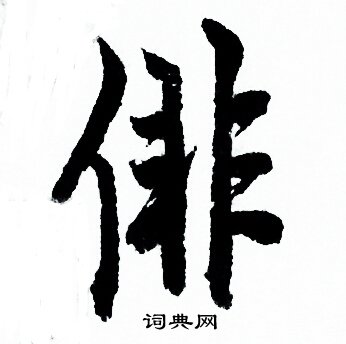 俳
词典网